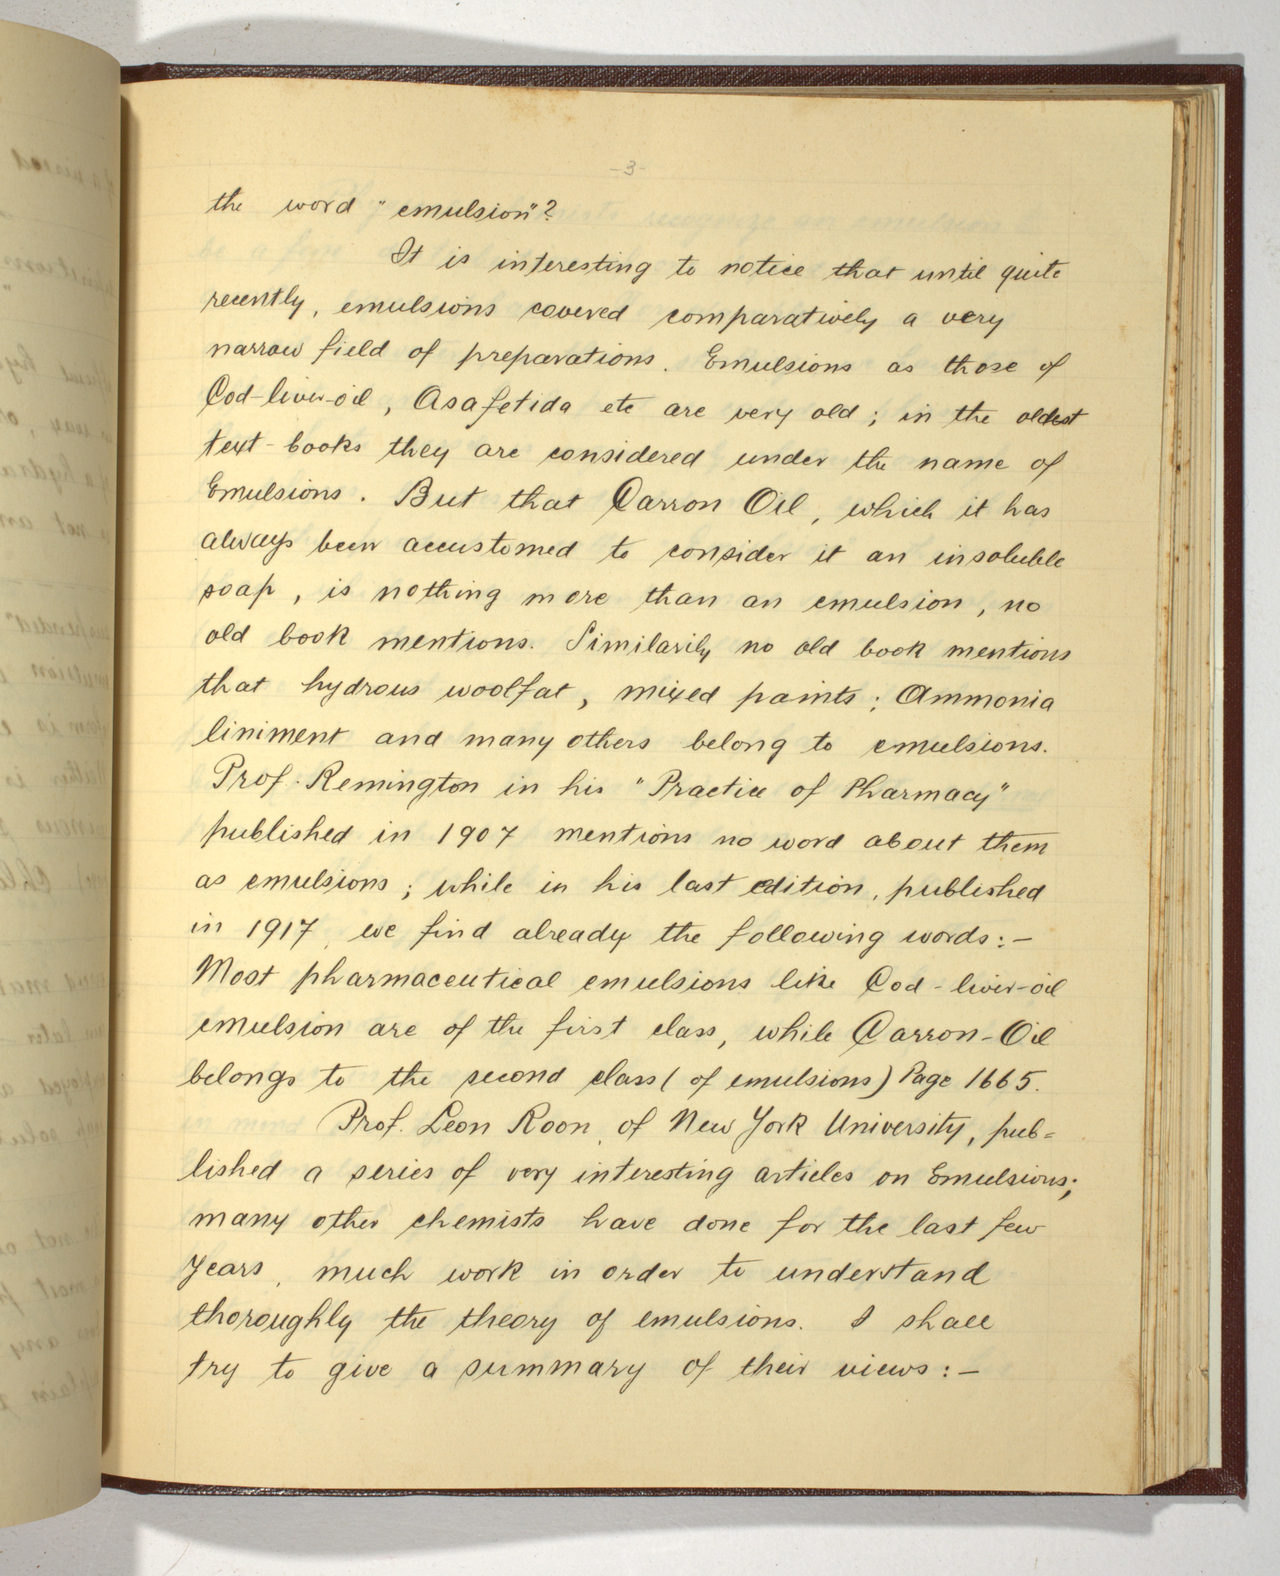 -3-
the word "emulsion"?
It is interesting to notice that until quite
recently, emulsions covered comparatively a very
narrow field of preparations. Emulsions as those of
Cod-liver-oil, Asafetida etc are very old; in the oldest
text-books they are considered under the name of
Emulsions. But that Carron Oil, which it has
always been accustomed to consider it an insoluble
soap, is nothing more than an emulsion, no
old book mentions. Similarily no old book mentions
that hydrous woolfat, mixed paints; Ammonia
liniment and many others belong to emulsions.
Prof. Remington in his "Practice of Pharmacy"
published in 1907 mentions no word about them
as emulsions; while in his last edition, published
in 1917, we find already the following words:-
Most pharmaceutical emulsions like Cod-liver-oil
emulsion are of the first class, while Carron-Oil
belongs to the second class (of emulsions) Page 1665.
Prof. Leon Roon, of New York University, pub=
lished a series of very interesting articles on Emulsions;
many other chemists have done for the last few
years, much work in order to understand
thoroughly the theory of emulsions. I shall
try to give a summary of their views:-